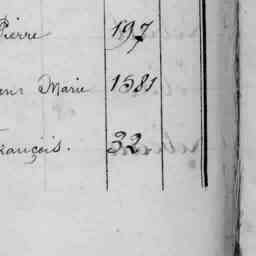 Pierre 197
Marie 1581
François. 32